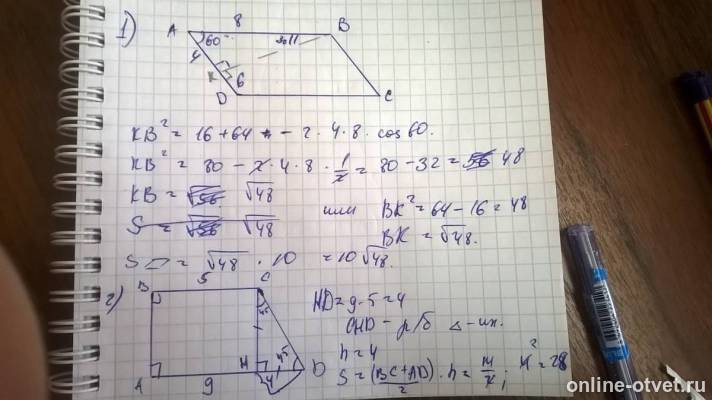 1)
A 8 B
60
4
K
6
D C
KB² = 16 + 64 - 2 · 4 · 8 · cos 60.
KB² = 80 - 2 · 4 · 8 · 1/2 = 80 - 32 = 56 48
KB = √56 √48
S = √56 √48
или BK² = 64 - 16 = 48
BK = √48.
S▱ = √48 · 10 = 10√48.
2)
B 5 C
45
45
A 9 H 4 D
HD = 9 - 5 = 4
CHD - р/б △-ик.
h = 4
S = (BC + AD)/2 · h =
online-otvet.ru